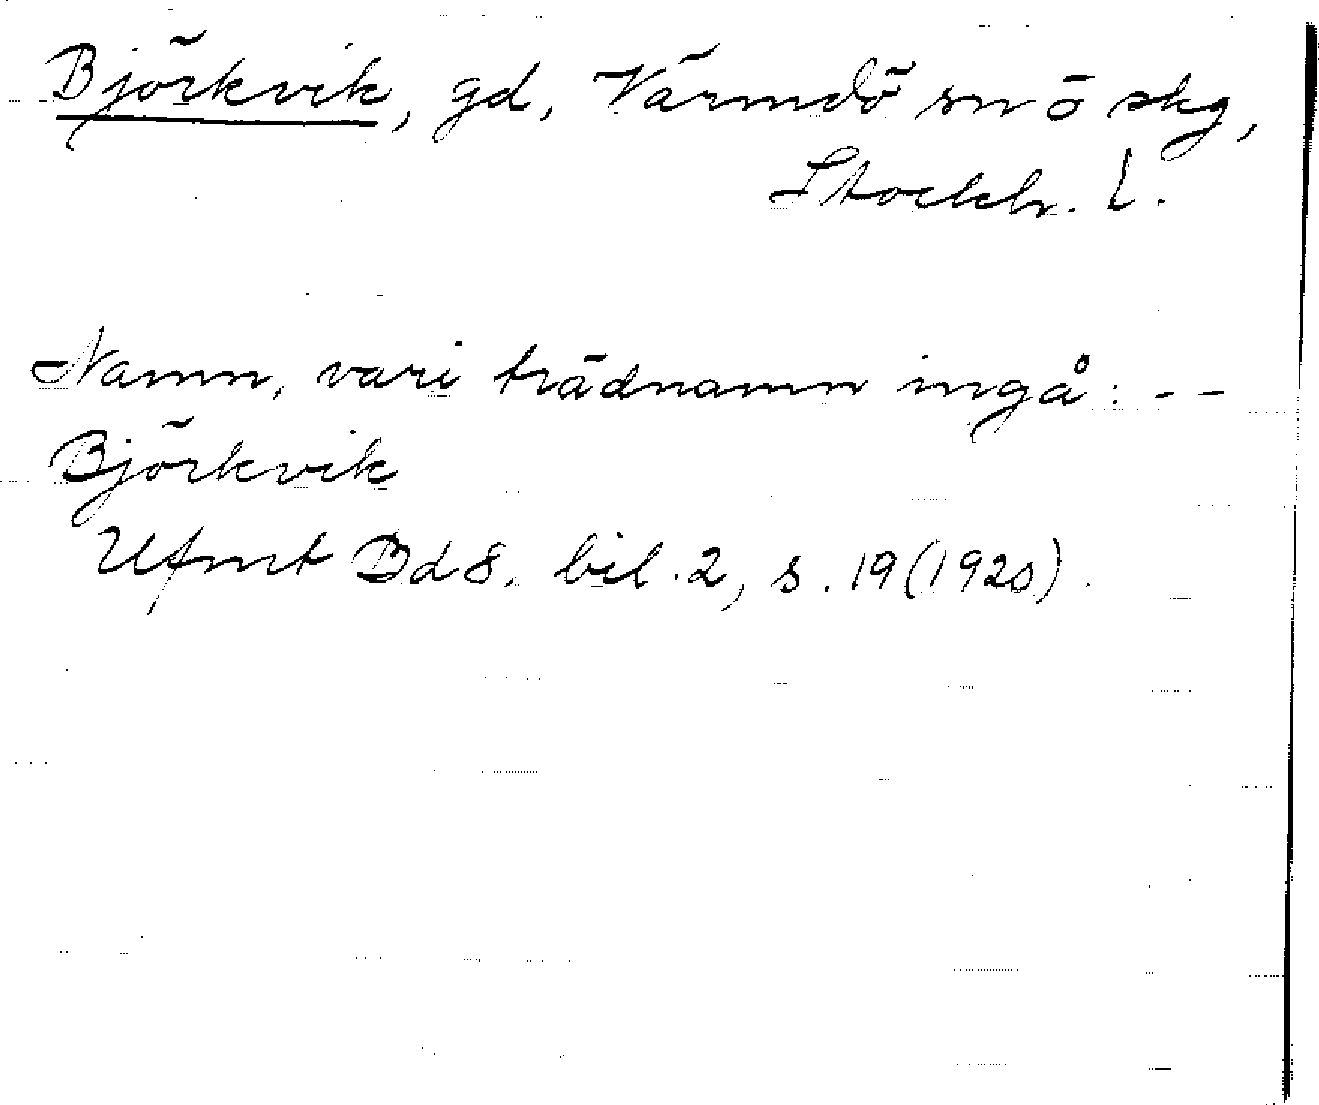 Björkvik, gd, Värmdö sn o skg,
Stockh. l.
Namn, vari trädnamn ingå: - -
Björkvik
Ufmt Bd 8. bil. 2, s. 19 (1920).